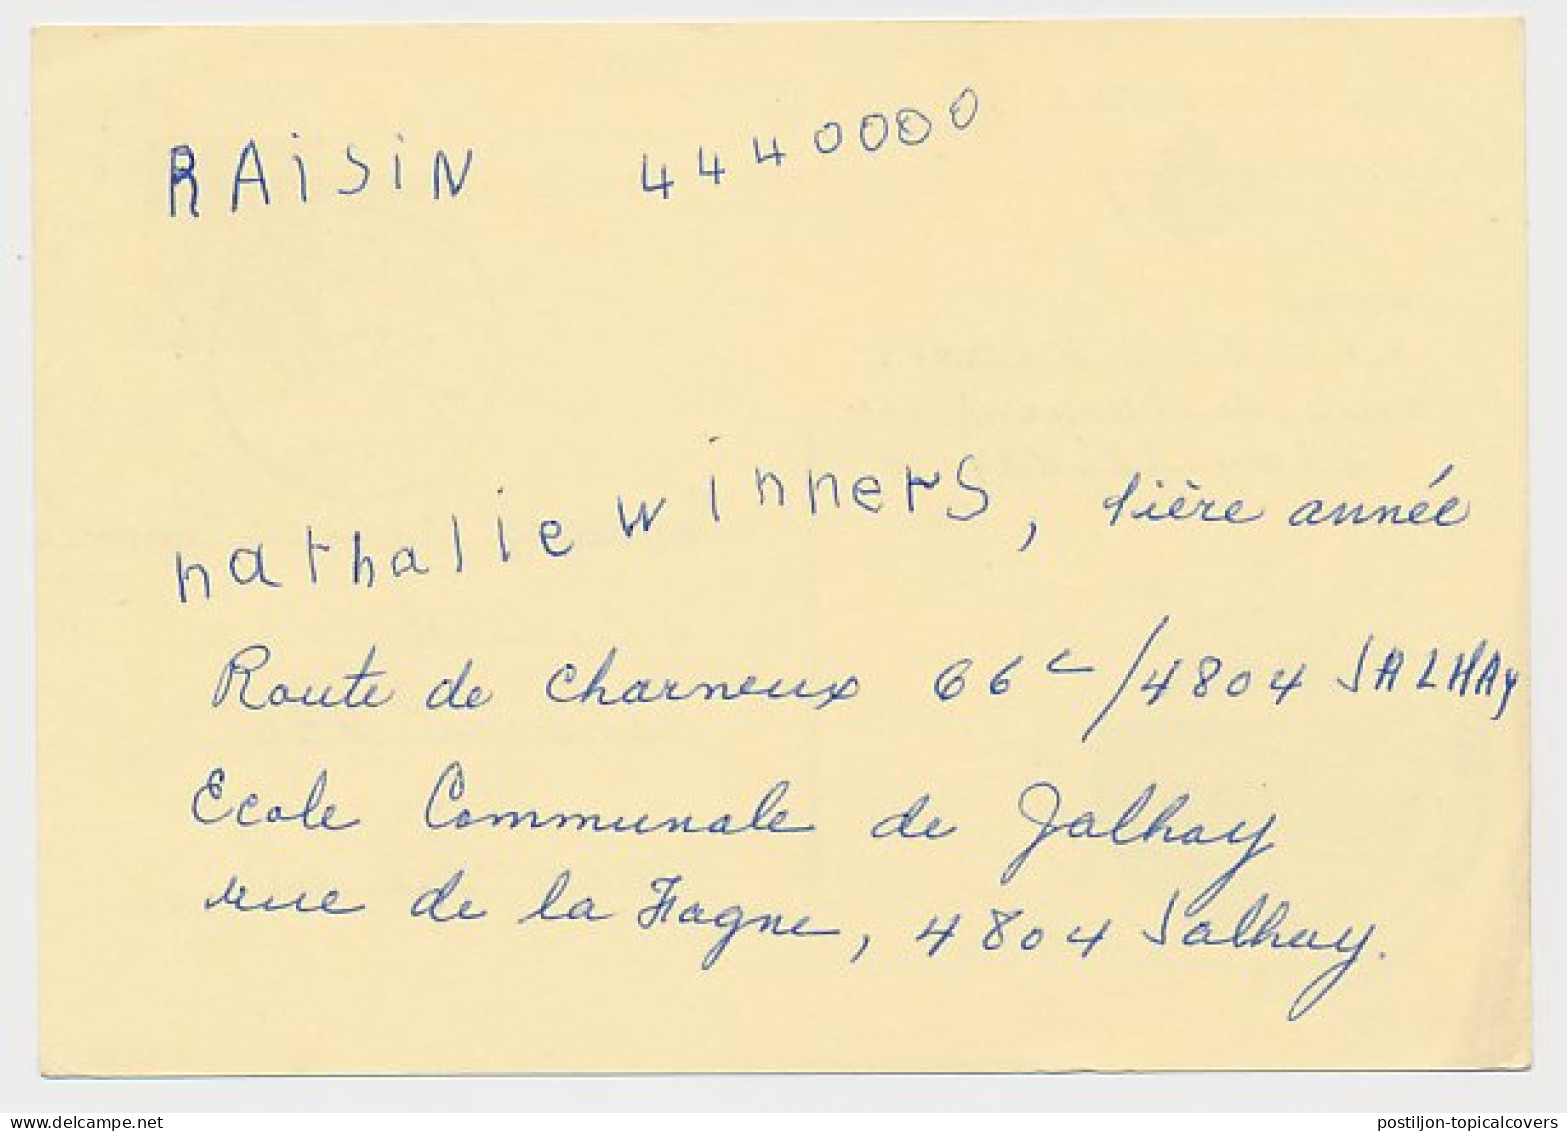 RAiSiN 4440000
nathalie winners, 1ière année
Route de Charneux 66c/4804 JALHAy
Ecole Communale de Jalhay
rue de la Fagne, 4804 Jalhay.
delcampe.net
postiljon-topicalcovers